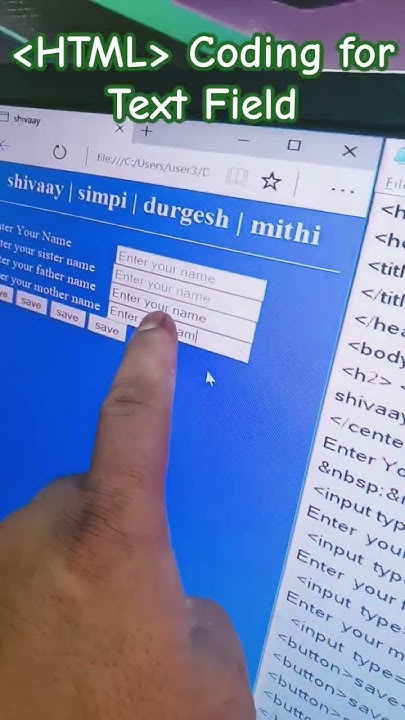 <HTML> Coding for
Text Field
shivaay
file:///C:/Users/user3/D
shivaay | simpi | durgesh | mithi
nter Your Name
Enter your name
er your sister name
Enter your name
er your father name
Enter your name
your mother name
Enter
am
save
save
save
File
<h
<he
<title
</title
</hea
<body
<h2> <
shivaay
</center
Enter Yo
&nbsp;&n
<input type
Enter your
<input type
Enter your f
<input type=
Enter your m
<input type=
<button>save<
<button>save
<button>sa
<button>
</body
</htm